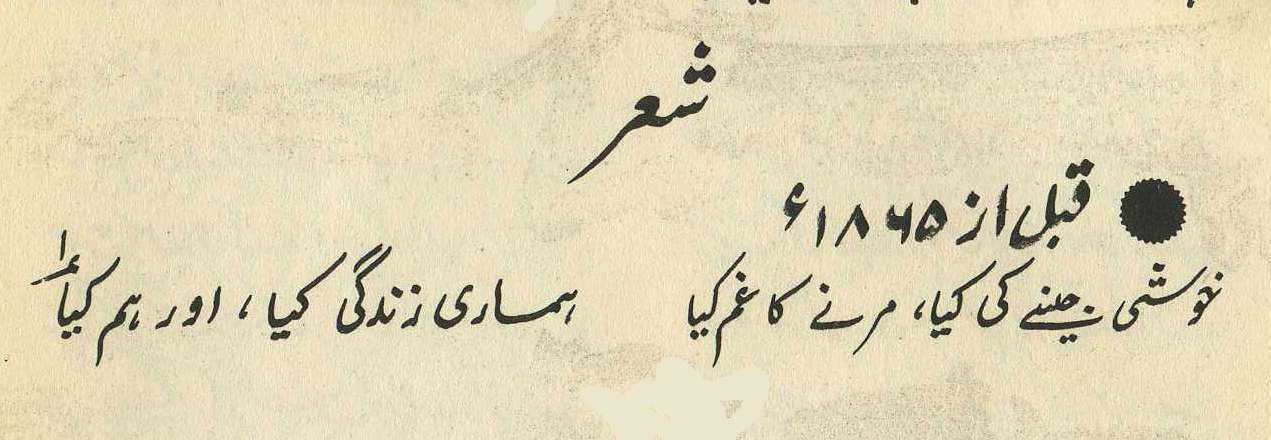 شعر
قبل از ۱۸۶۵ء
خوشی جینے کی کیا، مرنے کا غم کیا ہماری زندگی کیا، اور ہم کیا